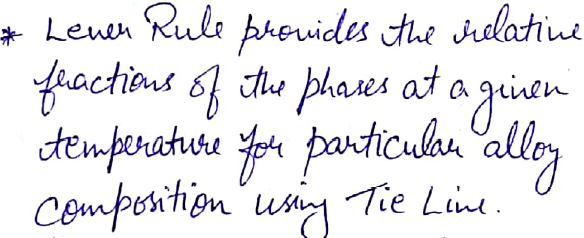 * Lever Rule provides the relative
fractions of the phases at a given
temperature for particular alloy
composition using Tie Line.